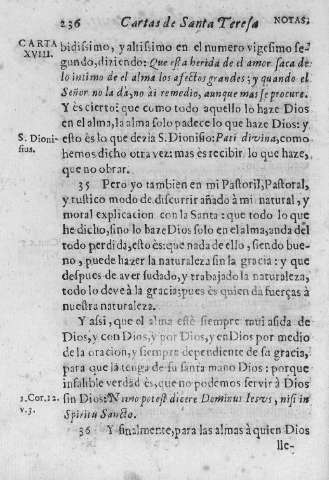 236 Cartas de Santa Teresa NOTAS,
CARTA XVIII.
bidissimo, y altissimo en el numero vigesimo se-
gundo, diziendo: Que esta herida de el amor saca de
lo intimo de el alma los afectos grandes; y quando el
Señor no la dà, no ai remedio, aunque mas se procure.
Y es cierto: que como todo aquello lo haze Dios
en el alma, la alma solo padece lo que haze Dios: y
S. Dionisius.
esto es lo que dezia S. Dionisio: Pati divina, como
hemos dicho otra vez: mas es recibir lo que haze,
que no obrar.
35 Pero yo tambien en mi Pastoril, Pastoral,
y rustico modo de discurrir añado à mi natural, y
moral explicacion con la Santa: que todo lo que
he dicho, sino lo haze Dios solo en el alma, anda del
todo perdida, esto es: que nada de ello, siendo bue-
no, puede hazer la naturaleza sin la gracia: y que
despues de aver sudado, y trabajado la naturaleza,
todo lo deve à la gracia; pues es quien da fuerças à
nuestra naturaleza.
Y assi, que el alma estè siempre mui asida de
Dios, y con Dios, y por Dios, y en Dios por medio
de la oracion, y siempre dependiente de su gracia,
para que la tenga de su santa mano Dios: porque
infalible verdad es, que no podemos servir à Dios
1. Cor. 12. v. 3.
sin Dios: Nemo potest dicere Dominus Iesus, nisi in
Spiritu Sancto.
36 Y finalmente, para las almas à quien Dios
lle-